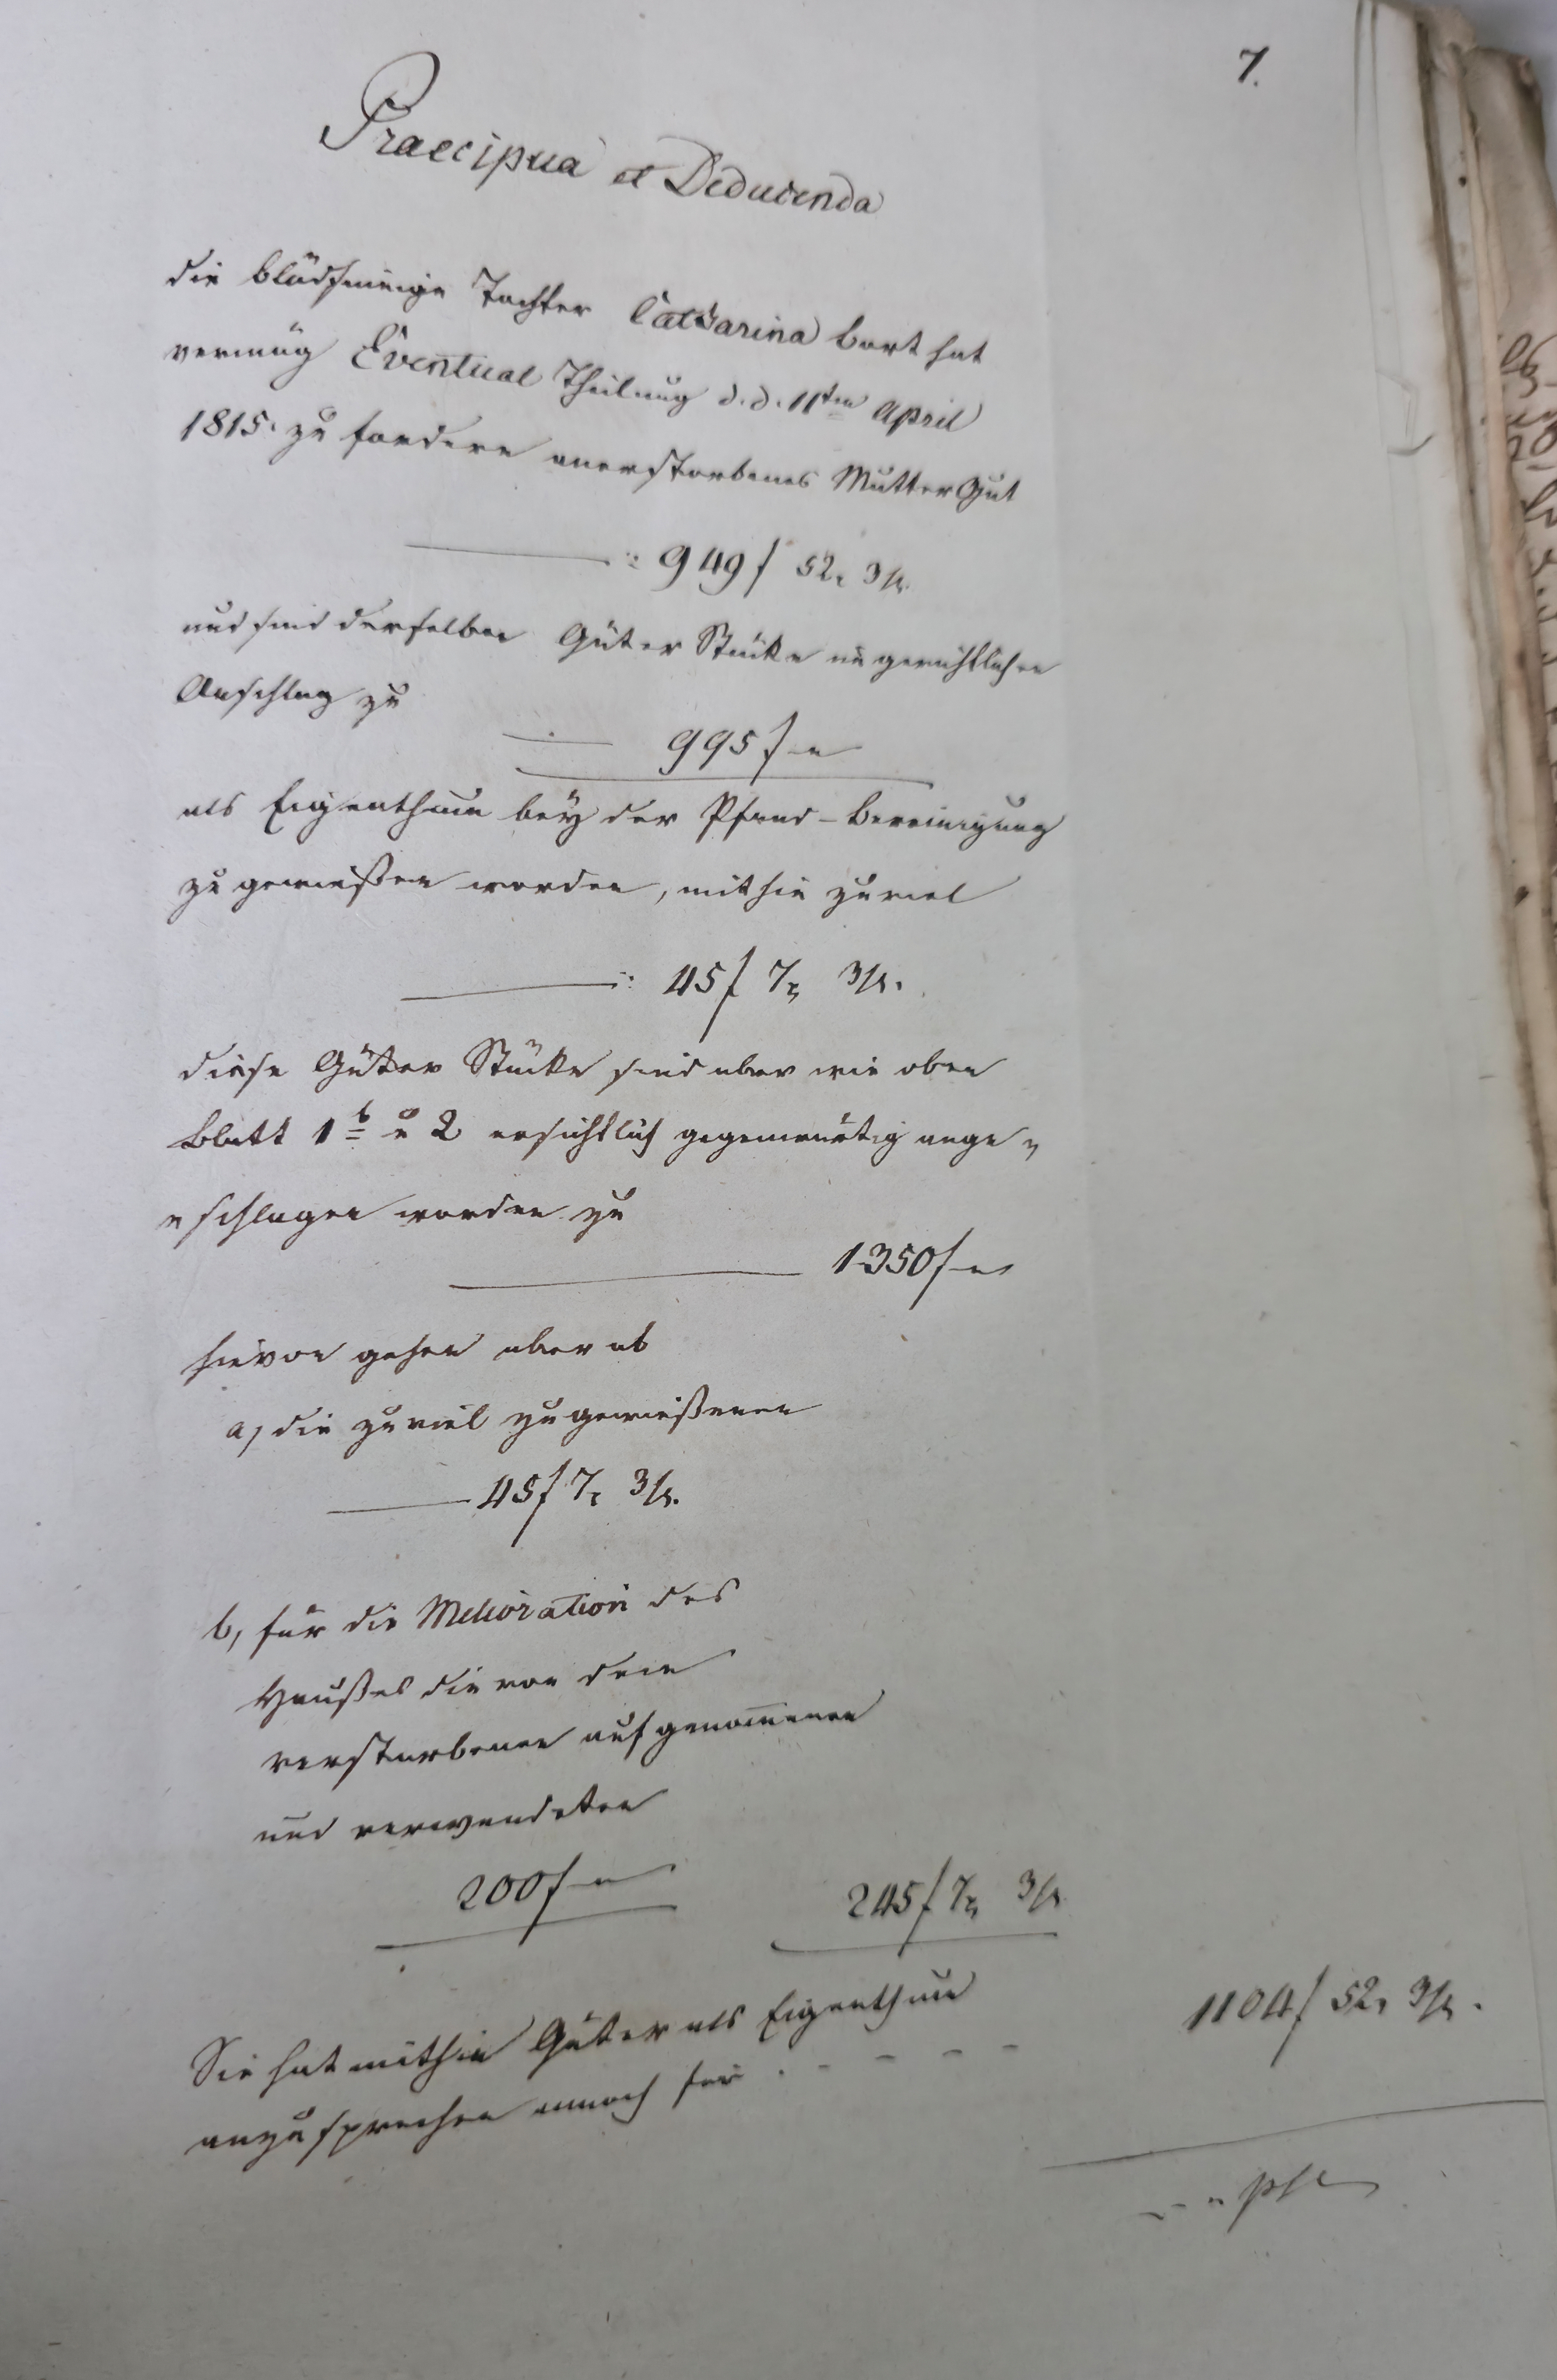 7.
Praecipua et Deducenda
die blödsinnige Tochter Catharina Bort hat
vermög Eventual Theilung d. d. 11ten April
1815. zu fordern anerstorbenes Mutter Gut
949 f 52 x 3 h.
und sind derselben Güter Stücke im gerichtlichen
Anschlag zu
995 f -"
als Eigenthum bey der Pfand-Bereinigung
zugewießen worden, mithin zuviel
45 f 7 x 3 h.
diese Güter Stücke sind aber wie oben
Blatt 1 b u 2 ersichtlich gegenwärtig ange„
„schlagen worden zu
1350 f -"
hievon gehen aber ab
a, die zuviel zugewießenen
45 f 7 x 3 h.
b, für die Melioration des
Haußes die von dem
verstorbenen aufgenom̅enen
und verwendeten
200 f -"
245 f 7 x 3 h
Sie hat mithin Güter als Eigenthum
anzusprechen annoch für . - - - -
1104 f 52 x 3 h.